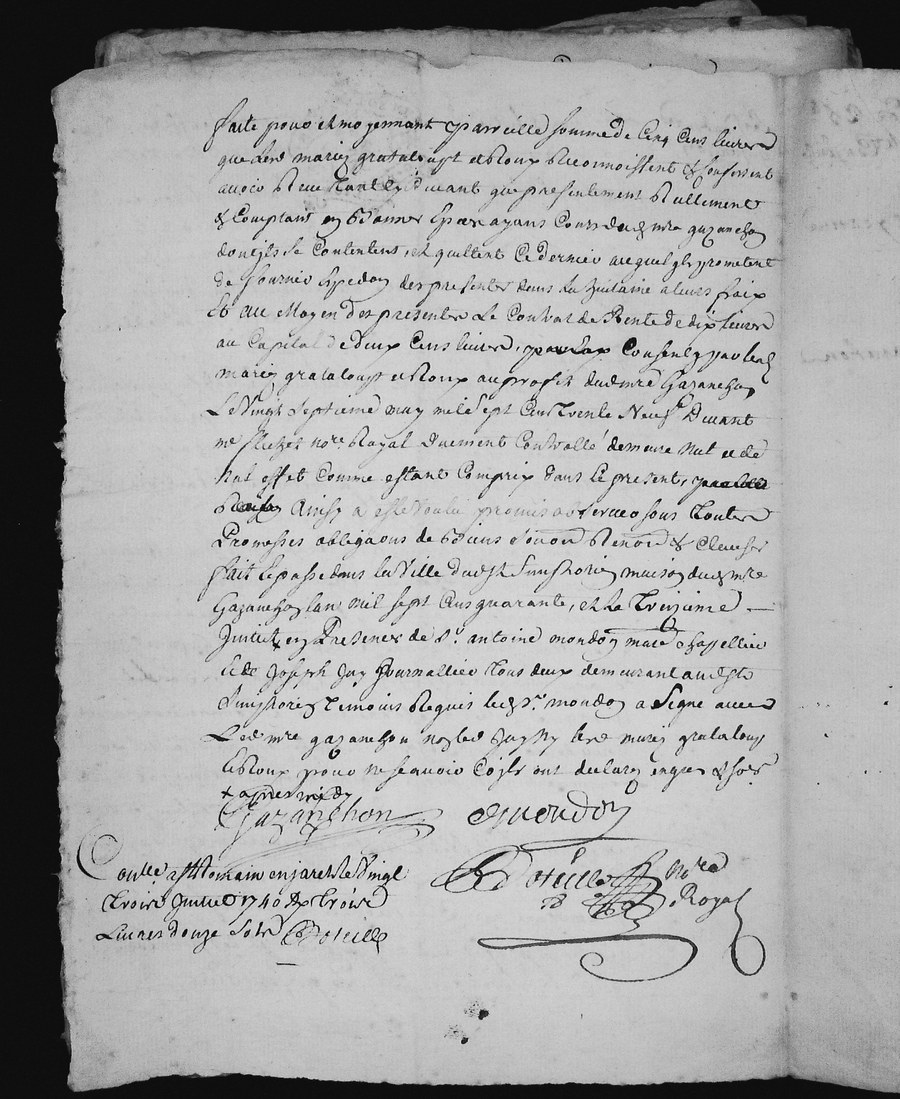 faite pour et moyennant pareille somme de Cinq Cens livres
que Lesd mariez grataloup et Roux Reconnoissent & Confessent
avoir Receu tant cy devant que presentement Reellement
& Comptant en Espèces ayans Cours dud mre gazanchon
dont ils se Contentent, et quittent Ce dernier auquel ils prometent
de fournir Expedon des presentes dans la huitaine a leurs fraix
Et au Moyen des presentes Le Contrat de Rente de dix livres
au Capital de deux Cens livres, Consenty par lesd
mariez grataloup et Roux au profit dud mre Gazanchon
Le Vingt Septieme may mil Sept Cens Trente Neuf Devant
me nore Royal Duement Controllé demeure Nul et de
Nul effet Comme estant Compris dans le present,
Ainsy a esté Voulu promis observer sous Toutes
Promesses obligaons de Biens Renon & Clauses
fait et passé dans la Ville dud St Simphorien maison dud mre
Gazanchon lan Mil Sept Cens quarante, et le Treizieme
Juillet en Presence de Sr. antoine mondon matre Chapellier
et de Joseph Jay Journallier tous deux demeurant aud St
Simphorien temoins Requis led Sr. mondon a Signé avec
Led mre gazanchon non led Jay ny lesd mariez grataloup
et Roux pour ne scavoir Coe ils ont declaré enquis &
Gazanchon Mondon
Conllé a St Romain en jarest le Vingt
Troise Juillet 1740 Rx Troise
Livres douze Sols Boteille
Boteille Nre
Royal